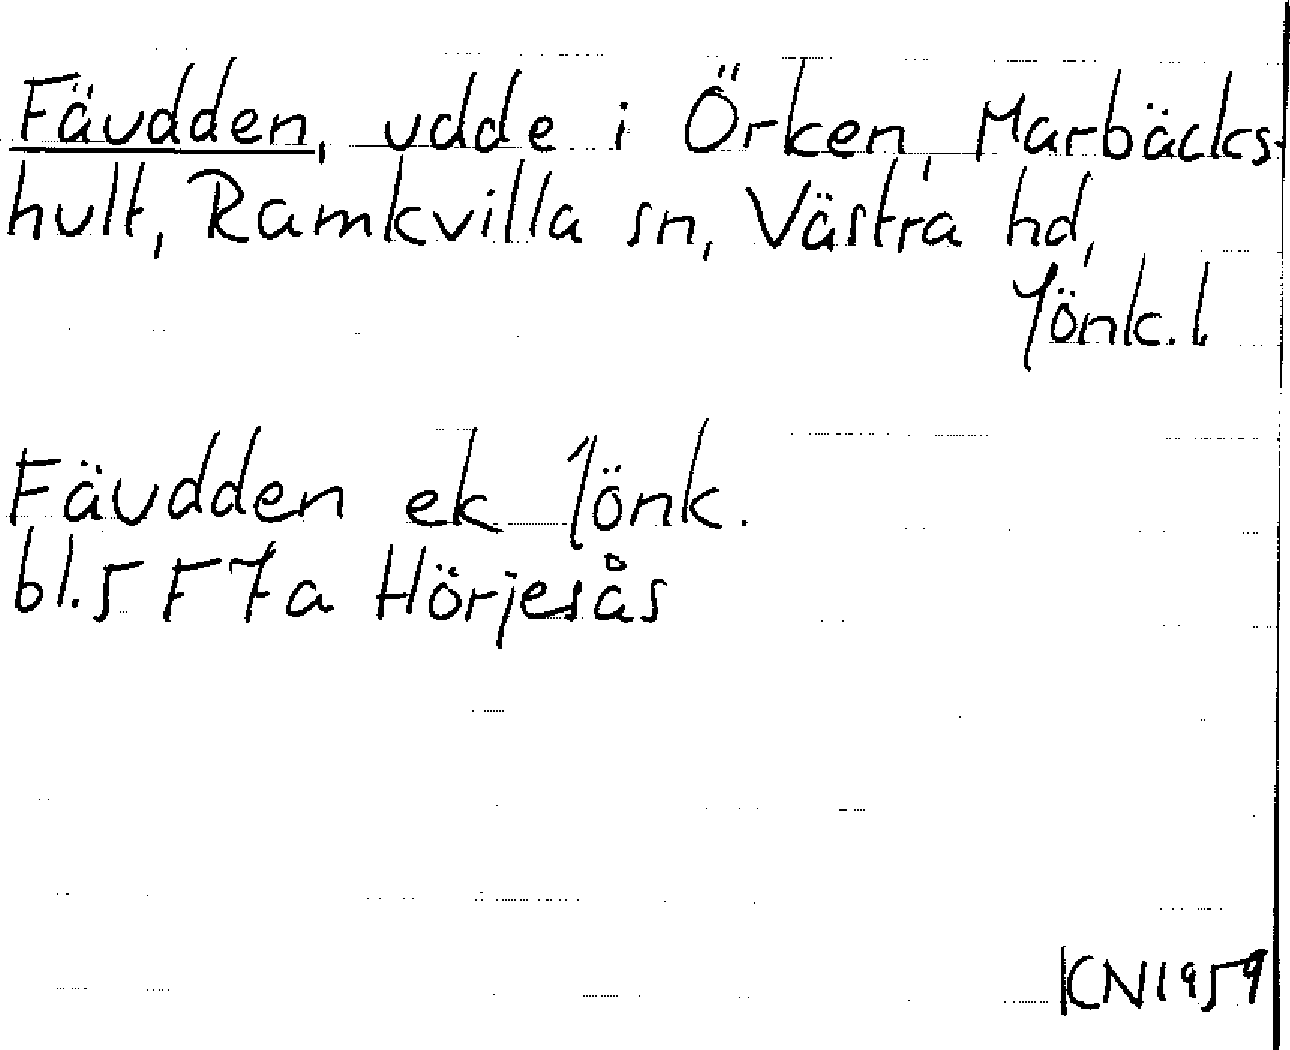 Fäudden, udde i Örken, Marbäcks-
hult, Ramkvilla sn, Västra hd,
Jönk.l
Fäudden ek Jönk.
bl.5 F 7a Hörjesås
KCN1959